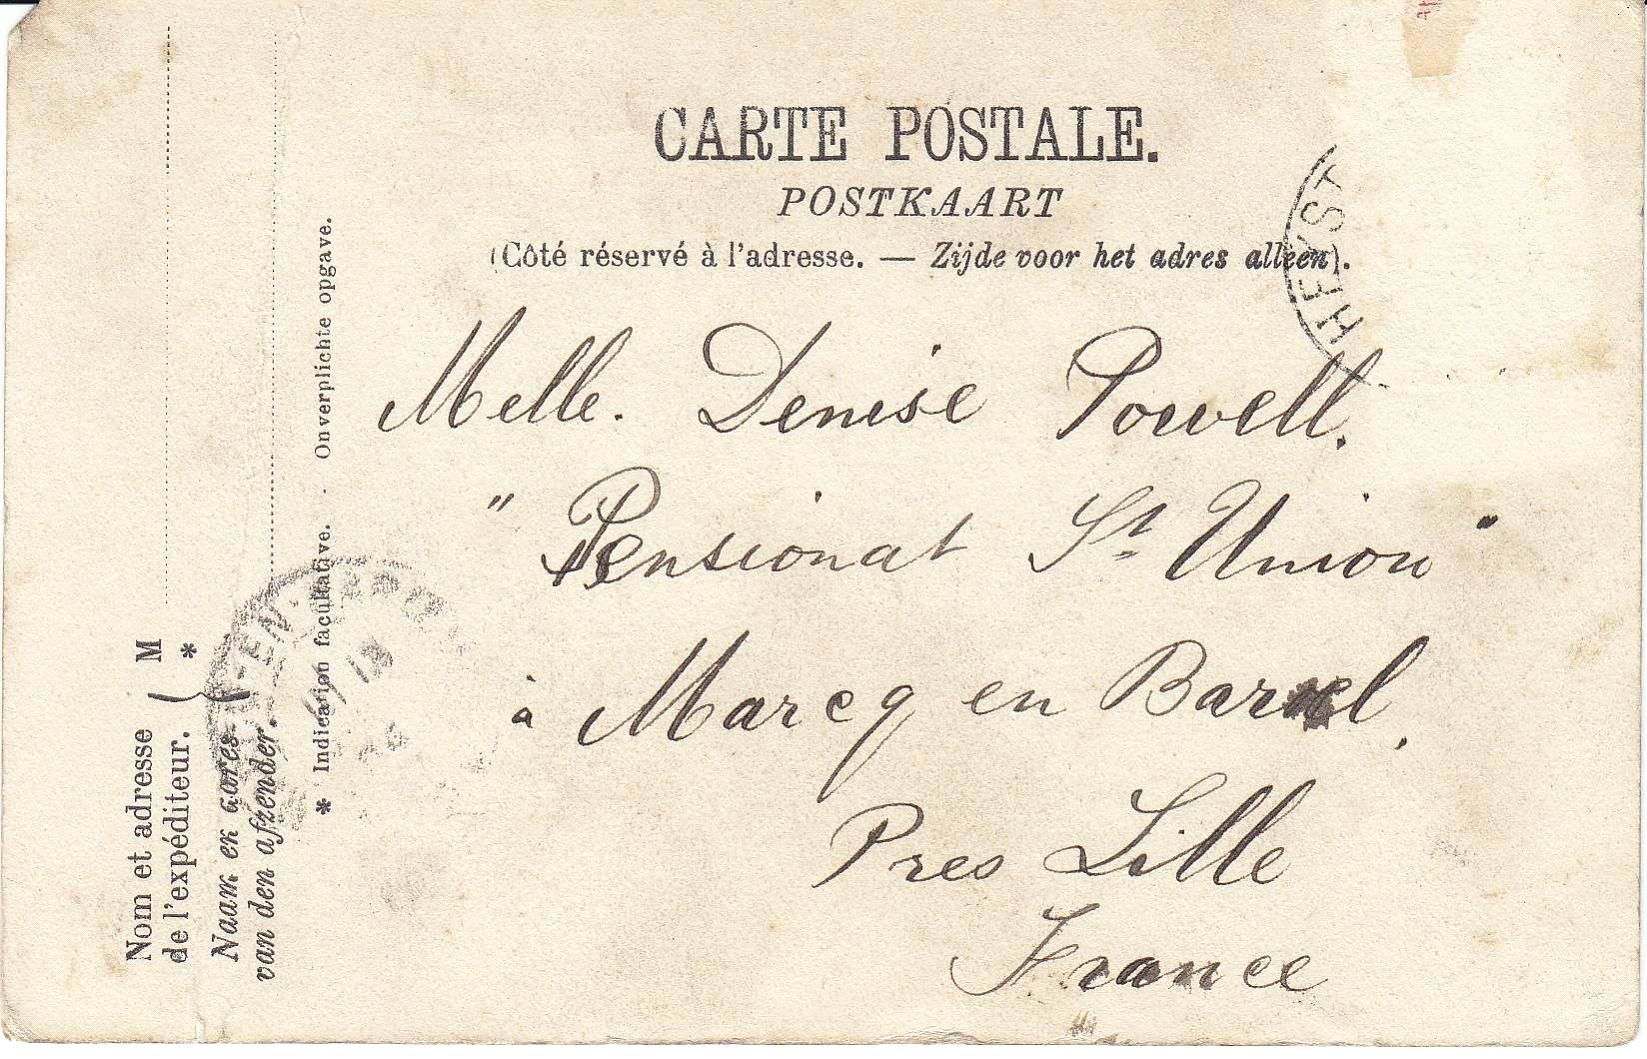 CARTE POSTALE.
POSTKAART
(Côté réservé à l'adresse. — Zijde voor het adres alleen).
HEYST
Melle. Denise Powell.
" Pensionat St Union "
à Marcq en Barœl,
Pres Lille
France
Nom et adresse
de l'expéditeur.
Naam en adres
van den afzender.
M
*
* Indication facultative. - Onverplichte opgave.